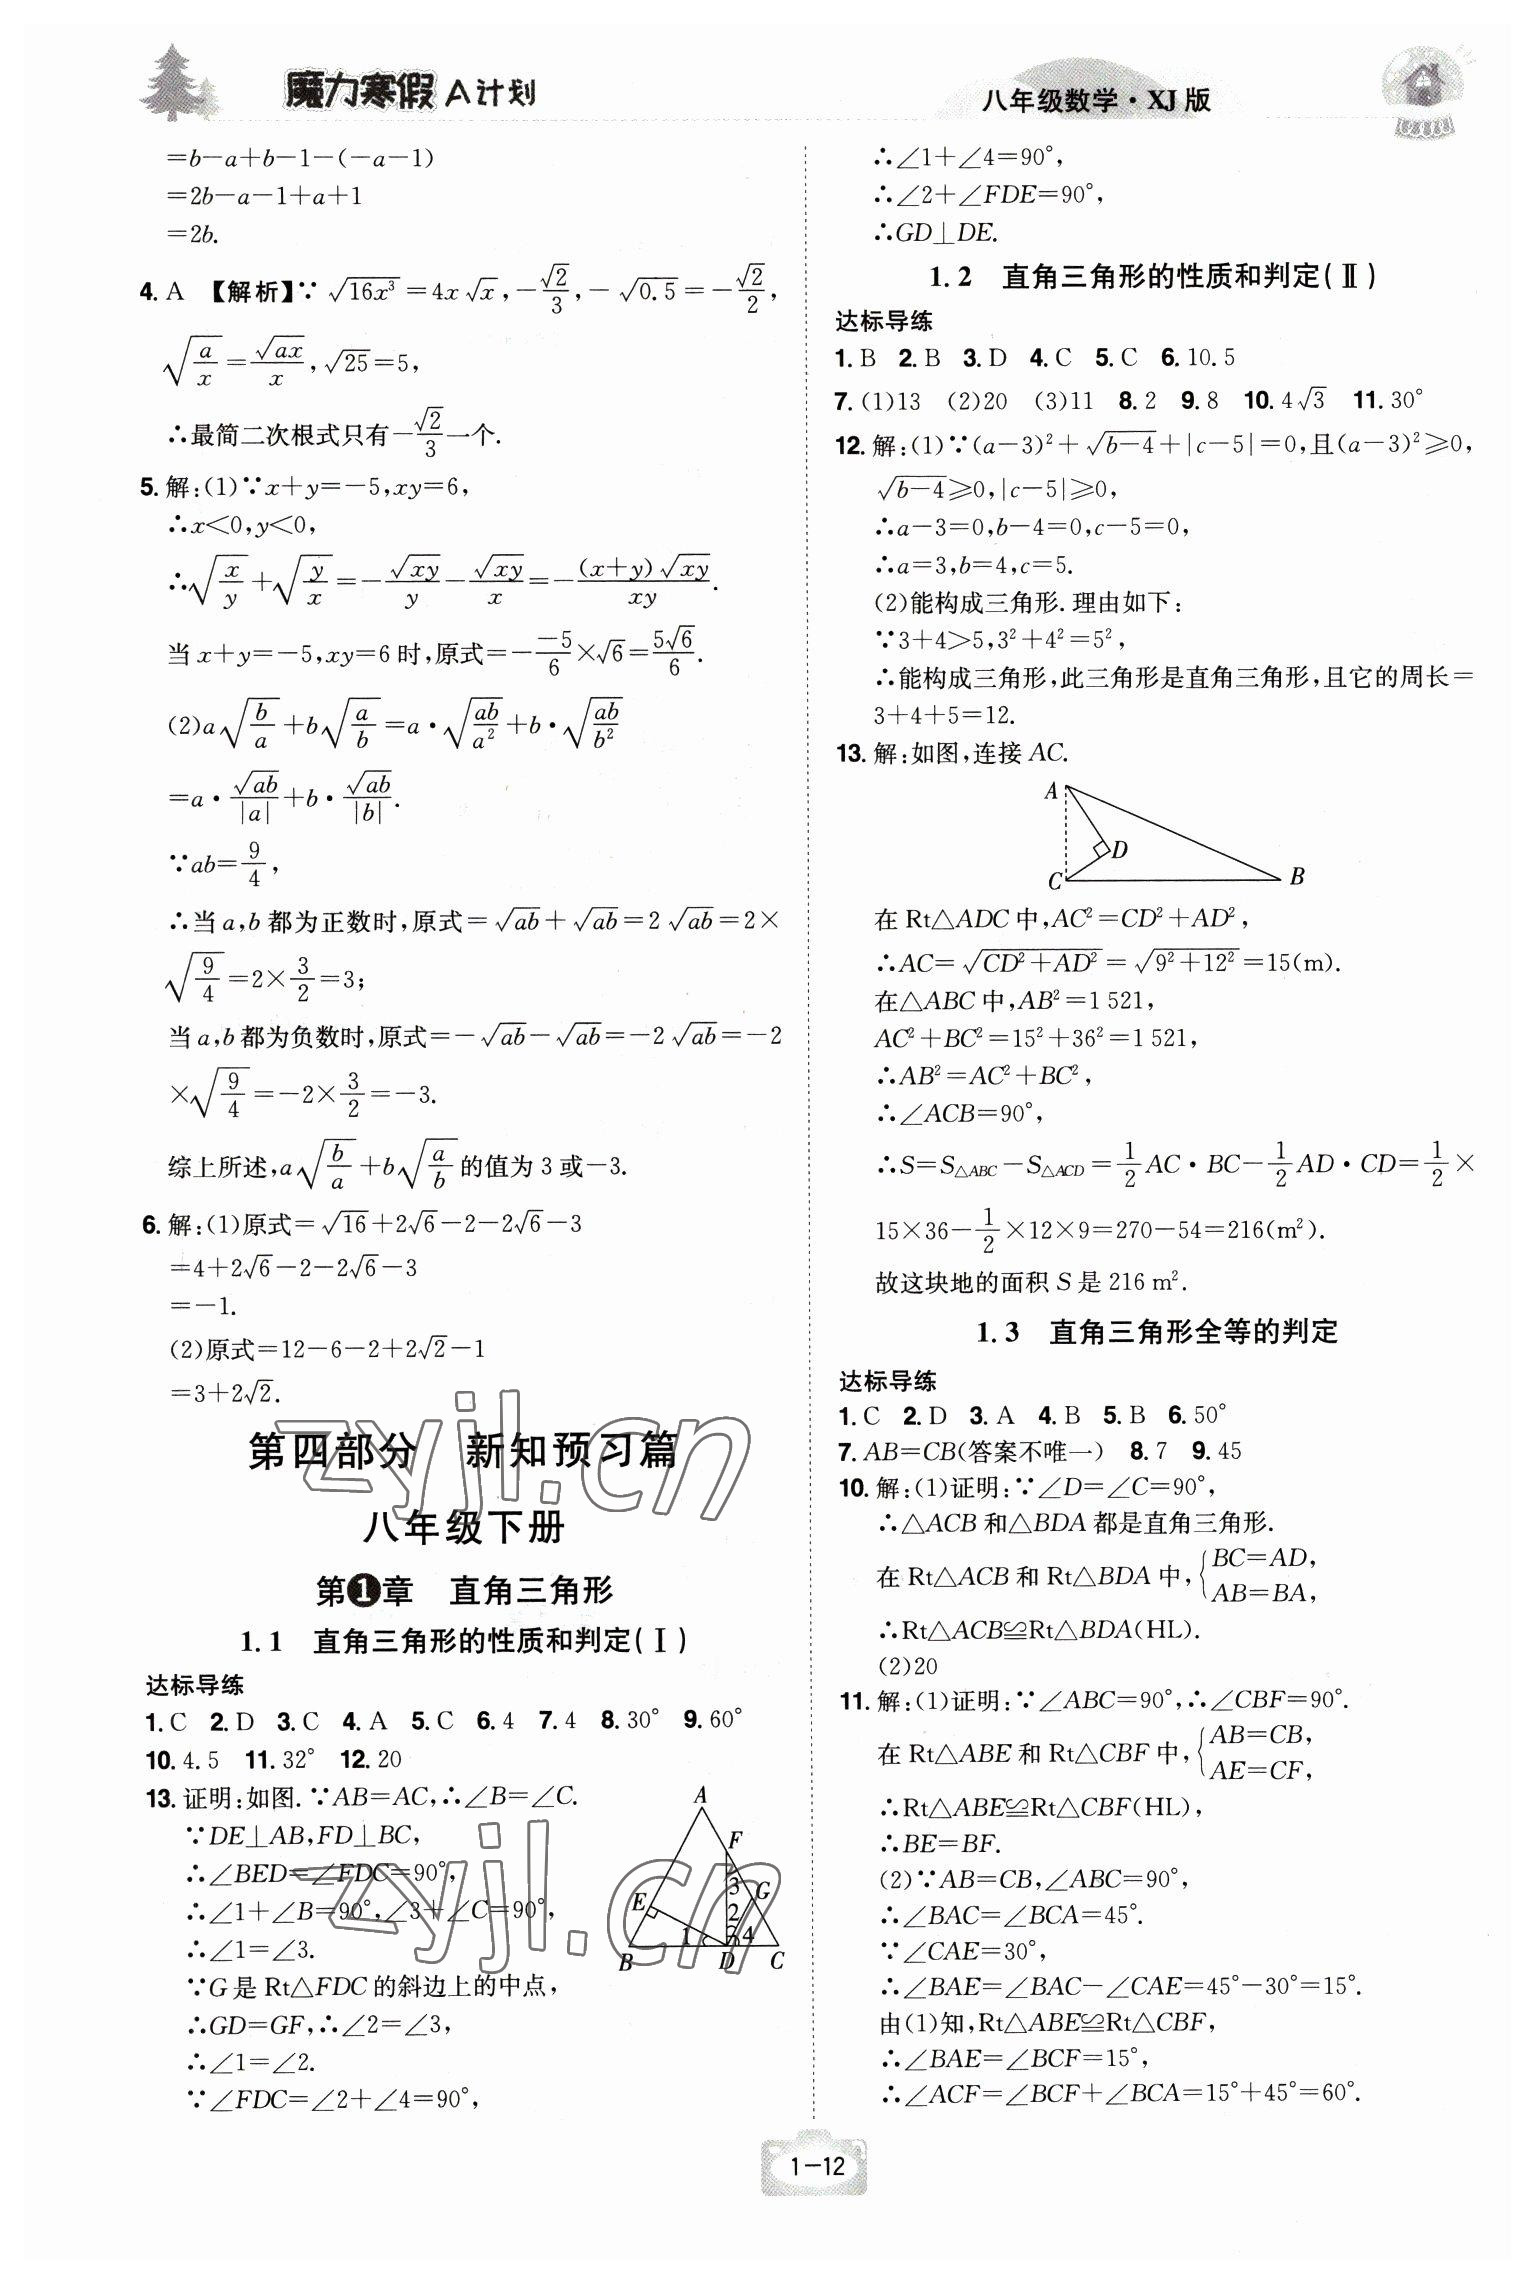 魔力寒假A计划
八年级数学·XJ版
=b-a+b-1-(-a-1)
=2b-a-1+a+1
=2b.
4. A 【解析】∵√(16x³)=4x√x,-√2/3,-√0.5=-√2/2,
√(a/x)=√(ax)/x,√25=5,
∴最简二次根式只有-√2/3一个.
5. 解:(1)∵x+y=-5,xy=6,
∴x<0,y<0,
∴√(x/y)+√(y/x)=-√(xy)/y-√(xy)/x=-(x+y)√(xy)/xy.
当x+y=-5,xy=6时,原式=-(-5)/6×√6=5√6/6.
(2)a√(b/a)+b√(a/b)=a·√(ab/a²)+b·√(ab/b²)
=a·√(ab)/|a|+b·√(ab)/|b|.
∵ab=9/4,
∴当a,b都为正数时,原式=√(ab)+√(ab)=2√(ab)=2×
√(9/4)=2×3/2=3;
当a,b都为负数时,原式=-√(ab)-√(ab)=-2√(ab)=-2
×√(9/4)=-2×3/2=-3.
综上所述,a√(b/a)+b√(a/b)的值为3或-3.
6. 解:(1)原式=√16+2√6-2-2√6-3
=4+2√6-2-2√6-3
=-1.
(2)原式=12-6-2+2√2-1
=3+2√2.
第四部分 新知预习篇
八年级下册
第1章 直角三角形
1.1 直角三角形的性质和判定(Ⅰ)
达标导练
1. C 2. D 3. C 4. A 5. C 6. 4 7. 4 8. 30° 9. 60°
10. 4.5 11. 32° 12. 20
13. 证明:如图.∵AB=AC,∴∠B=∠C.
∵DE⊥AB,FD⊥BC,
∴∠BED=∠FDC=90°,
∴∠1+∠B=90°,∠3+∠C=90°,
∴∠1=∠3.
∵G是Rt△FDC的斜边上的中点,
∴GD=GF,∴∠2=∠3,
∴∠1=∠2.
∵∠FDC=∠2+∠4=90°,
A
F
3
G
E
2
1
4
B
D
C
∴∠1+∠4=90°,
∴∠2+∠FDE=90°,
∴GD⊥DE.
1.2 直角三角形的性质和判定(Ⅱ)
达标导练
1. B 2. B 3. D 4. C 5. C 6. 10.5
7. (1)13 (2)20 (3)11 8. 2 9. 8 10. 4√3 11. 30°
12. 解:(1)∵(a-3)²+√(b-4)+|c-5|=0,且(a-3)²≥0,
√(b-4)≥0,|c-5|≥0,
∴a-3=0,b-4=0,c-5=0,
∴a=3,b=4,c=5.
(2)能构成三角形.理由如下:
∵3+4>5,3²+4²=5²,
∴能构成三角形,此三角形是直角三角形,且它的周长=
3+4+5=12.
13. 解:如图,连接AC.
A
D
C
B
在Rt△ADC中,AC²=CD²+AD²,
∴AC=√(CD²+AD²)=√(9²+12²)=15(m).
在△ABC中,AB²=1 521,
AC²+BC²=15²+36²=1 521,
∴AB²=AC²+BC²,
∴∠ACB=90°,
∴S=S△ABC-S△ACD=1/2AC·BC-1/2AD·CD=1/2×
15×36-1/2×12×9=270-54=216(m²).
故这块地的面积S是216 m².
1.3 直角三角形全等的判定
达标导练
1. C 2. D 3. A 4. B 5. B 6. 50°
7. AB=CB(答案不唯一) 8. 7 9. 45
10. 解:(1)证明:∵∠D=∠C=90°,
∴△ACB和△BDA都是直角三角形.
在Rt△ACB和Rt△BDA中,{BC=AD,
AB=BA,
∴Rt△ACB≌Rt△BDA(HL).
(2)20
11. 解:(1)证明:∵∠ABC=90°,∴∠CBF=90°.
在Rt△ABE和Rt△CBF中,{AB=CB,
AE=CF,
∴Rt△ABE≌Rt△CBF(HL),
∴BE=BF.
(2)∵AB=CB,∠ABC=90°,
∴∠BAC=∠BCA=45°.
∵∠CAE=30°,
∴∠BAE=∠BAC-∠CAE=45°-30°=15°.
由(1)知,Rt△ABE≌Rt△CBF,
∴∠BAE=∠BCF=15°,
∴∠ACF=∠BCF+∠BCA=15°+45°=60°.
zyjl.cn
zyjl.cn
1-12